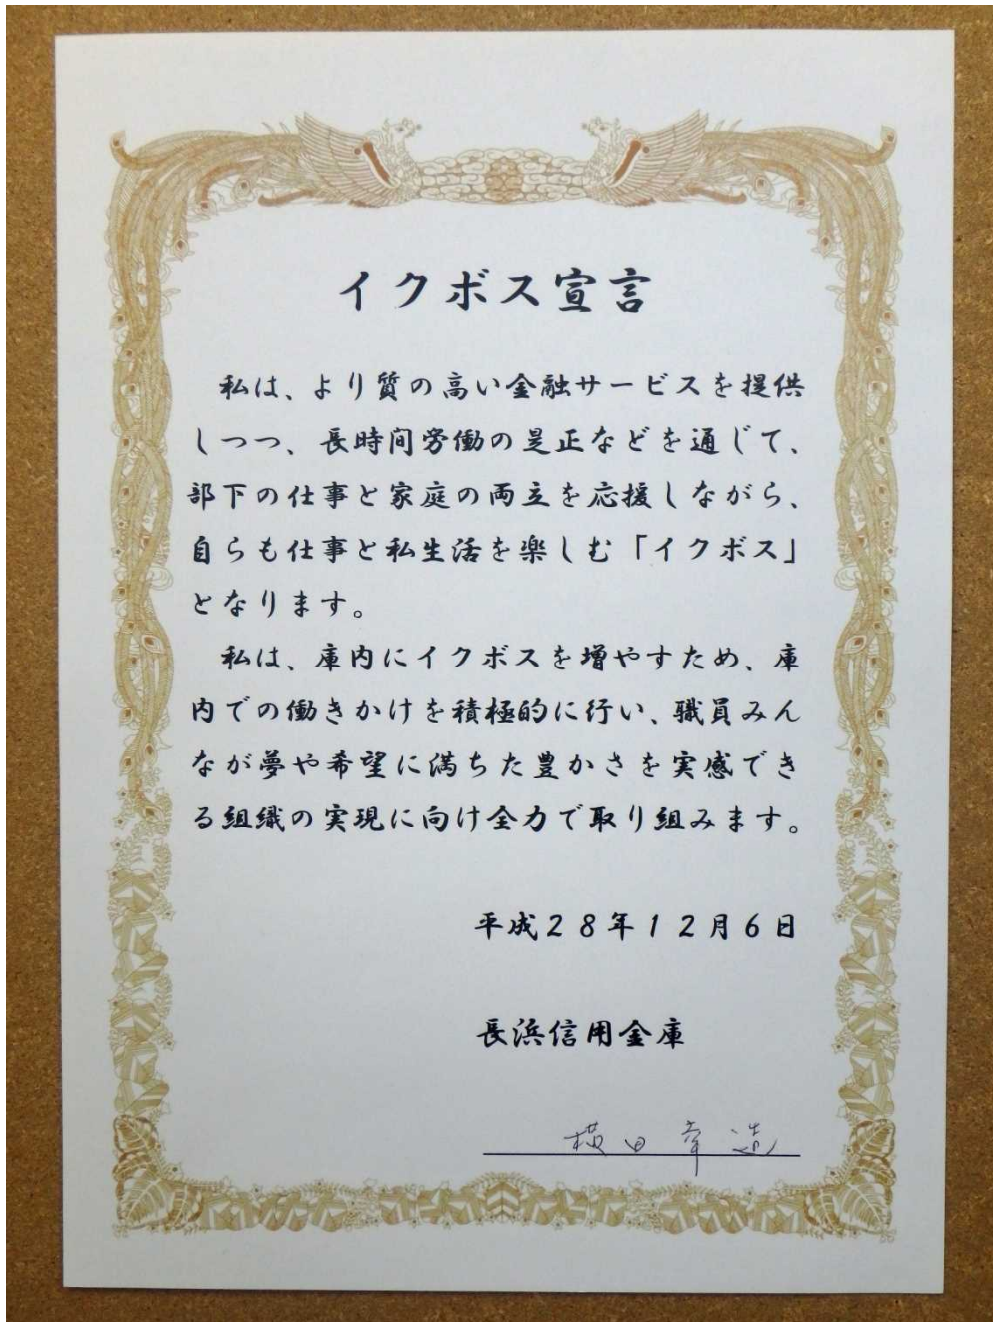 イクボス宣言
私は、より質の高い金融サービスを提供
しつつ、長時間労働の是正などを通じて、
部下の仕事と家庭の両立を応援しながら、
自らも仕事と私生活を楽しむ「イクボス」
となります。
私は、庫内にイクボスを増やすため、庫
内での働きかけを積極的に行い、職員みん
なが夢や希望に満ちた豊かさを実感でき
る組織の実現に向け全力で取り組みます。
平成28年12月6日
長浜信用金庫